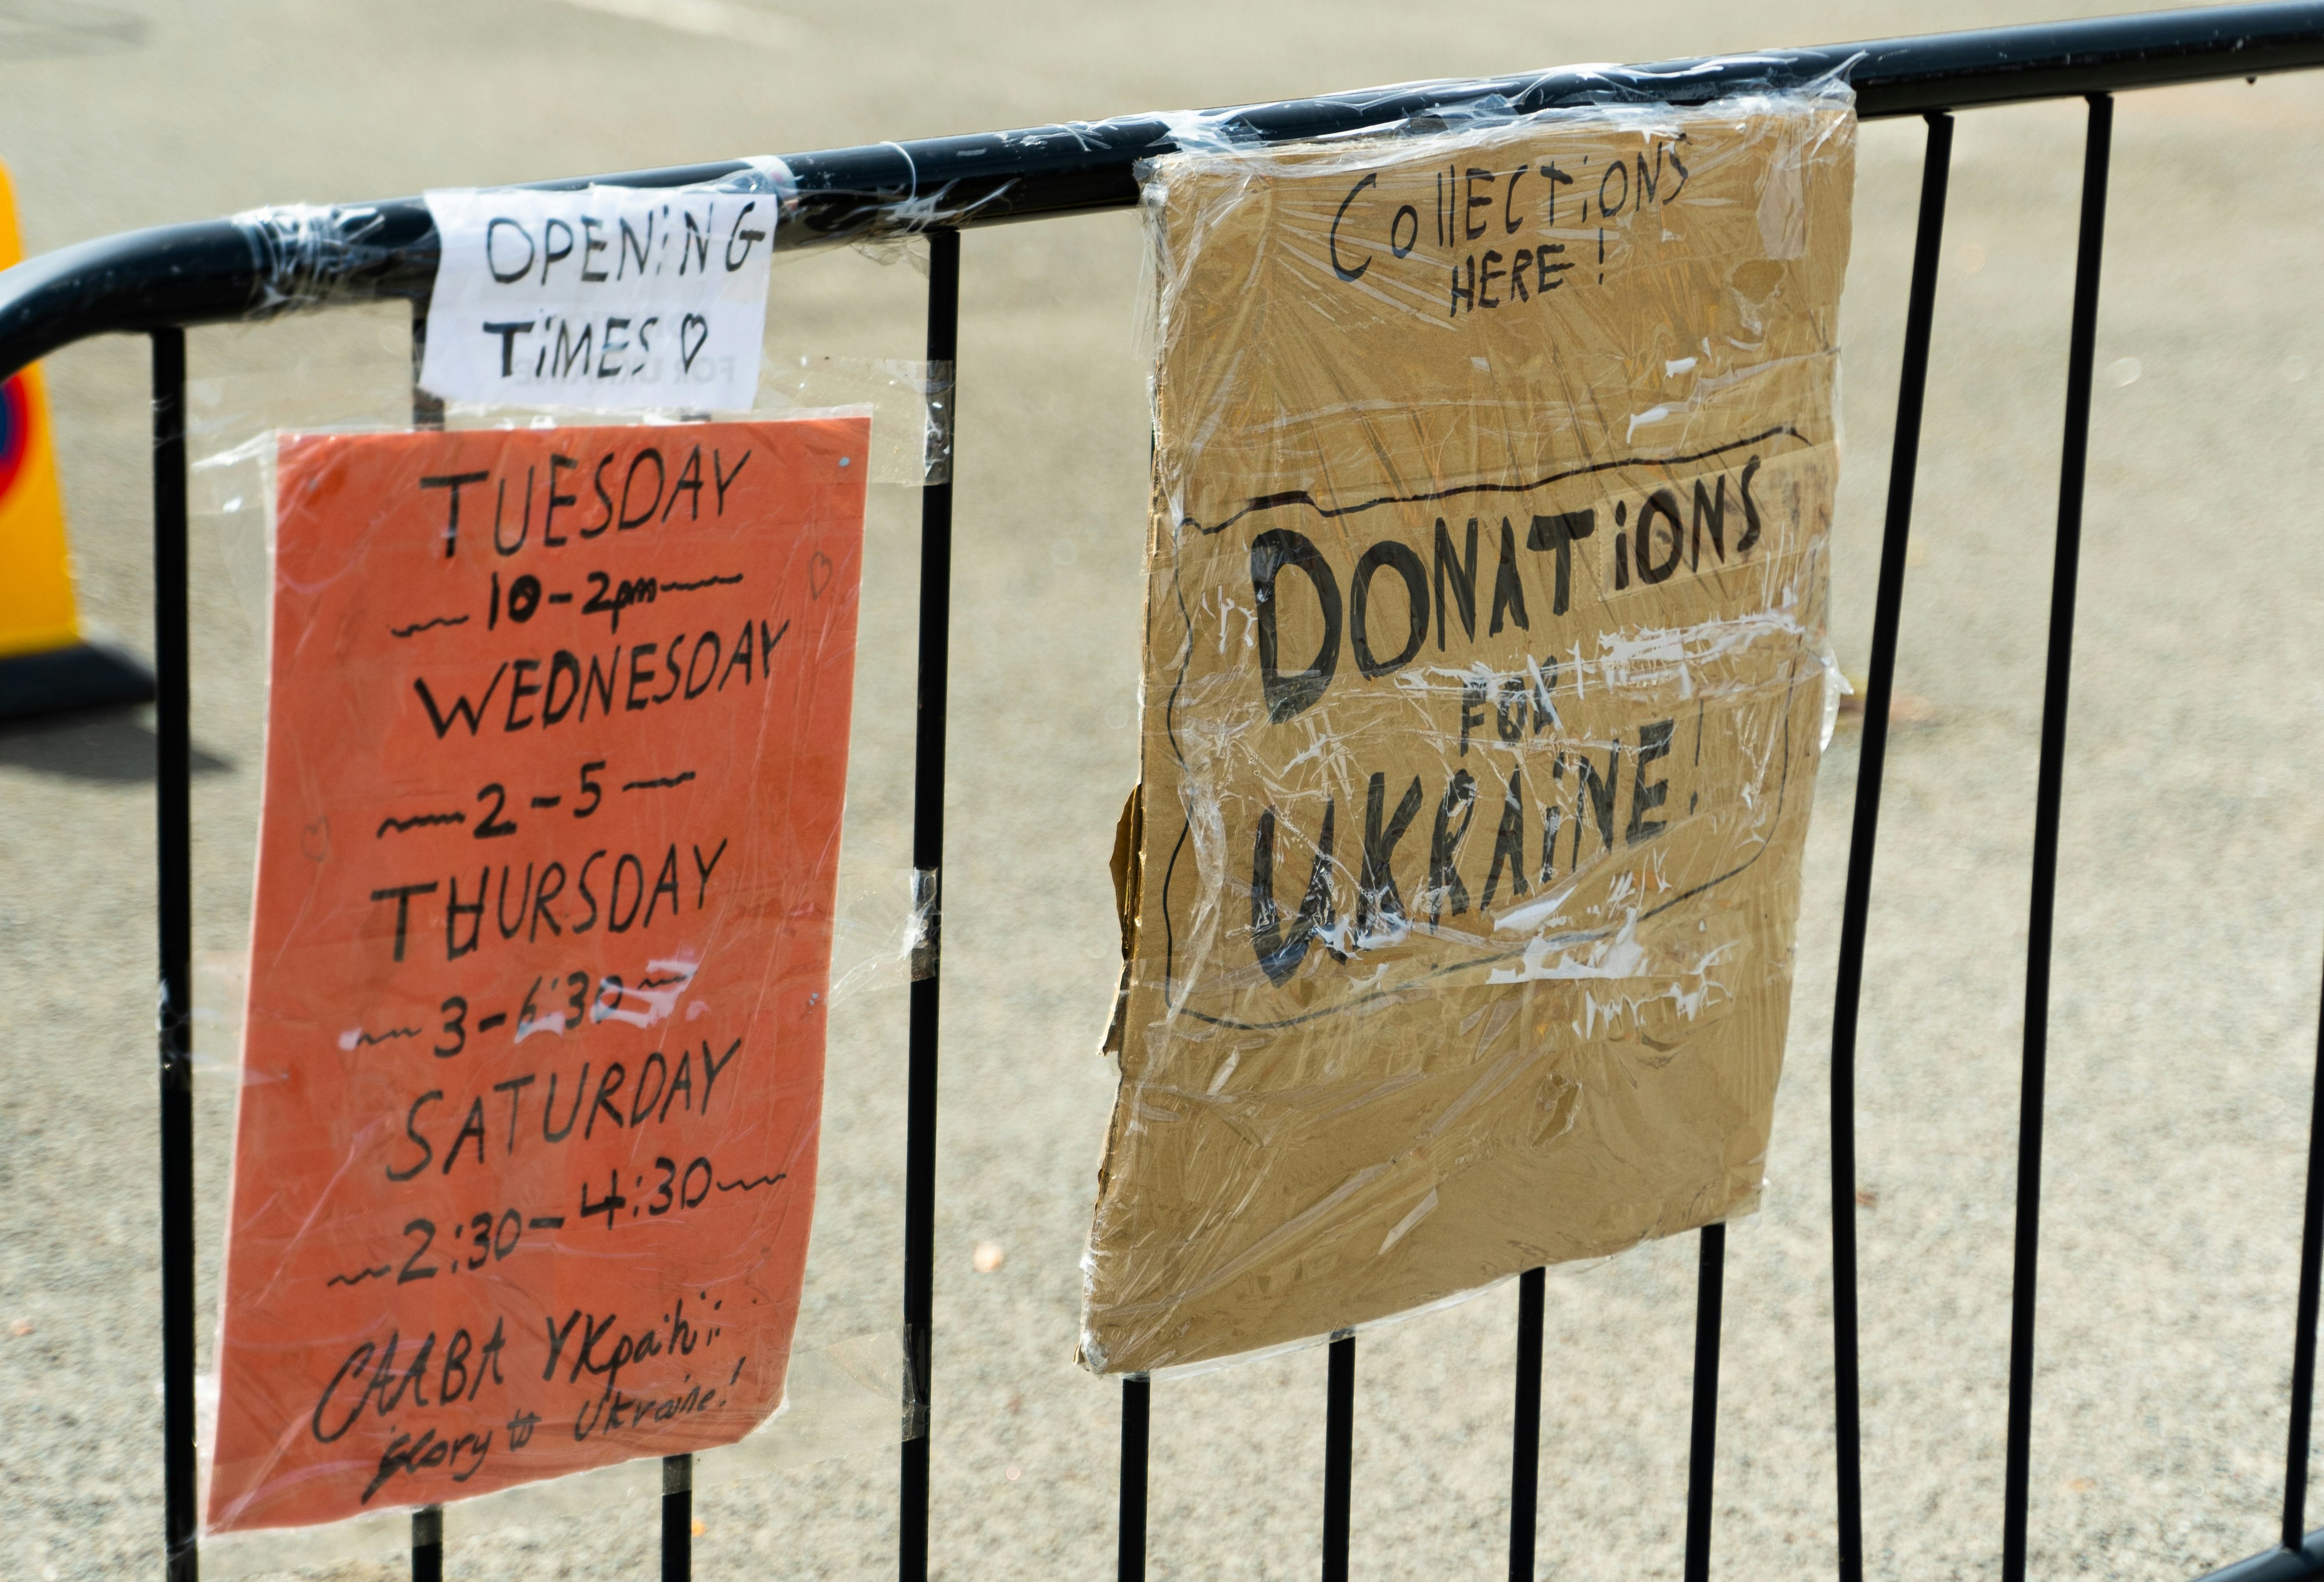 OPENiNG
TiMES ♡
TUESDAY
10-2pm
WEDNESDAY
2-5
THURSDAY
3-6:30
SATURDAY
2:30-4:30
СЛАВА УКраїні:
Glory to Ukraine!
CollECTiONS
HERE!
DONATiONS
FOR
UKRAiNE!